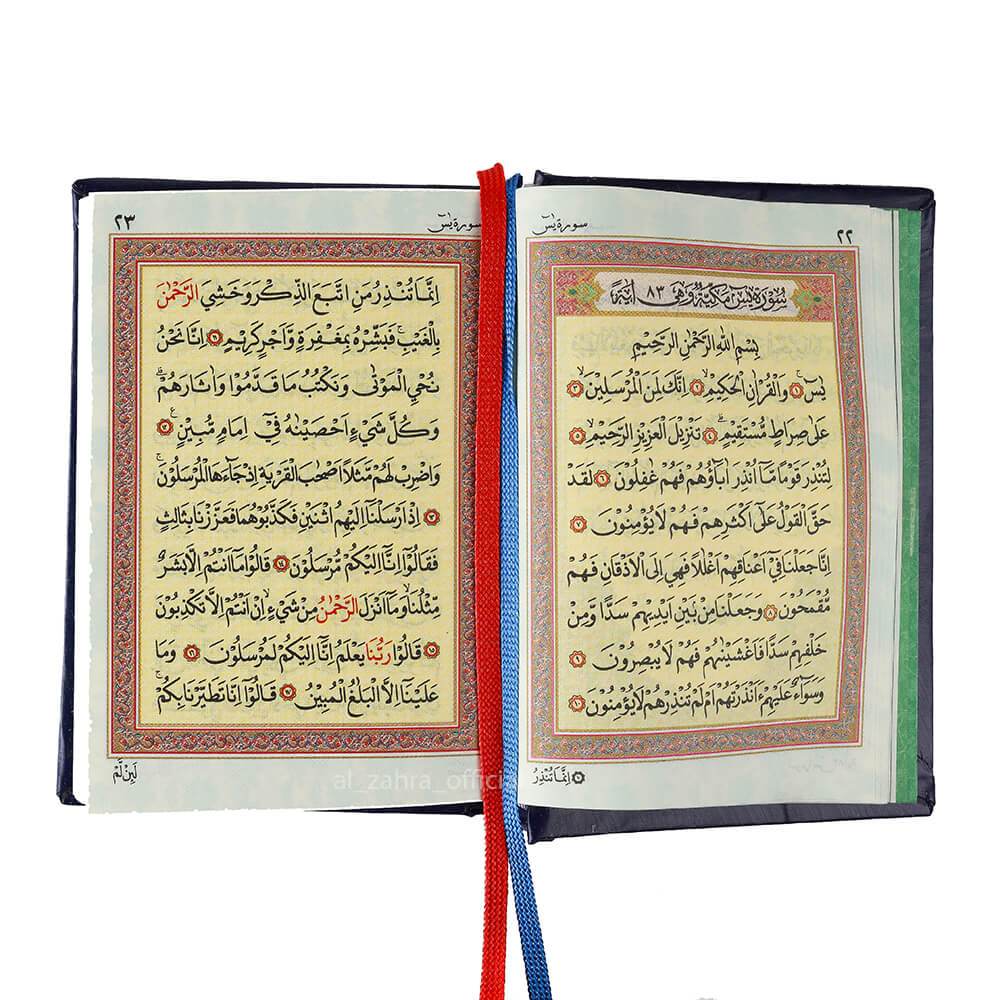 سورة يٰسٓ ٢٢
سُوْرَةُ يٰسٓ مَكِّيَّةٌ وَهِيَ ٨٣ اٰيَةً
بِسْمِ اللّٰهِ الرَّحْمٰنِ الرَّحِيْمِ
يٰسٓ ۚ ﴿١﴾ وَالْقُرْاٰنِ الْحَكِيْمِ ۙ ﴿٢﴾ اِنَّكَ لَمِنَ الْمُرْسَلِيْنَ ۙ ﴿٣﴾
عَلٰى صِرَاطٍ مُّسْتَقِيْمٍ ۗ ﴿٤﴾ تَنْزِيْلَ الْعَزِيْزِ الرَّحِيْمِ ۙ ﴿٥﴾
لِتُنْذِرَ قَوْمًا مَّآ اُنْذِرَ اٰبَاۤؤُهُمْ فَهُمْ غٰفِلُوْنَ ﴿٦﴾ لَقَدْ
حَقَّ الْقَوْلُ عَلٰٓى اَكْثَرِهِمْ فَهُمْ لَا يُؤْمِنُوْنَ ﴿٧﴾
اِنَّا جَعَلْنَا فِيْٓ اَعْنَاقِهِمْ اَغْلٰلًا فَهِيَ اِلَى الْاَذْقَانِ فَهُمْ
مُّقْمَحُوْنَ ﴿٨﴾ وَجَعَلْنَا مِنْۢ بَيْنِ اَيْدِيْهِمْ سَدًّا وَّمِنْ
خَلْفِهِمْ سَدًّا فَاَغْشَيْنٰهُمْ فَهُمْ لَا يُبْصِرُوْنَ ﴿٩﴾
وَسَوَاۤءٌ عَلَيْهِمْ ءَاَنْذَرْتَهُمْ اَمْ لَمْ تُنْذِرْهُمْ لَا يُؤْمِنُوْنَ ﴿١٠﴾
اِنَّمَا تُنْذِرُ
سورة يٰسٓ ٢٣
اِنَّمَا تُنْذِرُ مَنِ اتَّبَعَ الذِّكْرَ وَخَشِيَ الرَّحْمٰنَ
بِالْغَيْبِ ۚ فَبَشِّرْهُ بِمَغْفِرَةٍ وَّاَجْرٍ كَرِيْمٍ ﴿١١﴾ اِنَّا نَحْنُ
نُحْيِ الْمَوْتٰى وَنَكْتُبُ مَا قَدَّمُوْا وَاٰثَارَهُمْ ۗ
وَكُلَّ شَيْءٍ اَحْصَيْنٰهُ فِيْٓ اِمَامٍ مُّبِيْنٍ ࣖ ﴿١٢﴾
وَاضْرِبْ لَهُمْ مَّثَلًا اَصْحٰبَ الْقَرْيَةِ ۘ اِذْ جَاۤءَهَا الْمُرْسَلُوْنَ ۚ
﴿١٣﴾ اِذْ اَرْسَلْنَآ اِلَيْهِمُ اثْنَيْنِ فَكَذَّبُوْهُمَا فَعَزَّزْنَا بِثَالِثٍ
فَقَالُوْٓا اِنَّآ اِلَيْكُمْ مُّرْسَلُوْنَ ﴿١٤﴾ قَالُوْا مَآ اَنْتُمْ اِلَّا بَشَرٌ
مِّثْلُنَا ۙ وَمَآ اَنْزَلَ الرَّحْمٰنُ مِنْ شَيْءٍ ۙ اِنْ اَنْتُمْ اِلَّا تَكْذِبُوْنَ
﴿١٥﴾ قَالُوْا رَبُّنَا يَعْلَمُ اِنَّآ اِلَيْكُمْ لَمُرْسَلُوْنَ ﴿١٦﴾ وَمَا
عَلَيْنَآ اِلَّا الْبَلٰغُ الْمُبِيْنُ ﴿١٧﴾ قَالُوْٓا اِنَّا تَطَيَّرْنَا بِكُمْ ۚ
لَىِٕنْ لَّمْ
al_zahra_offici